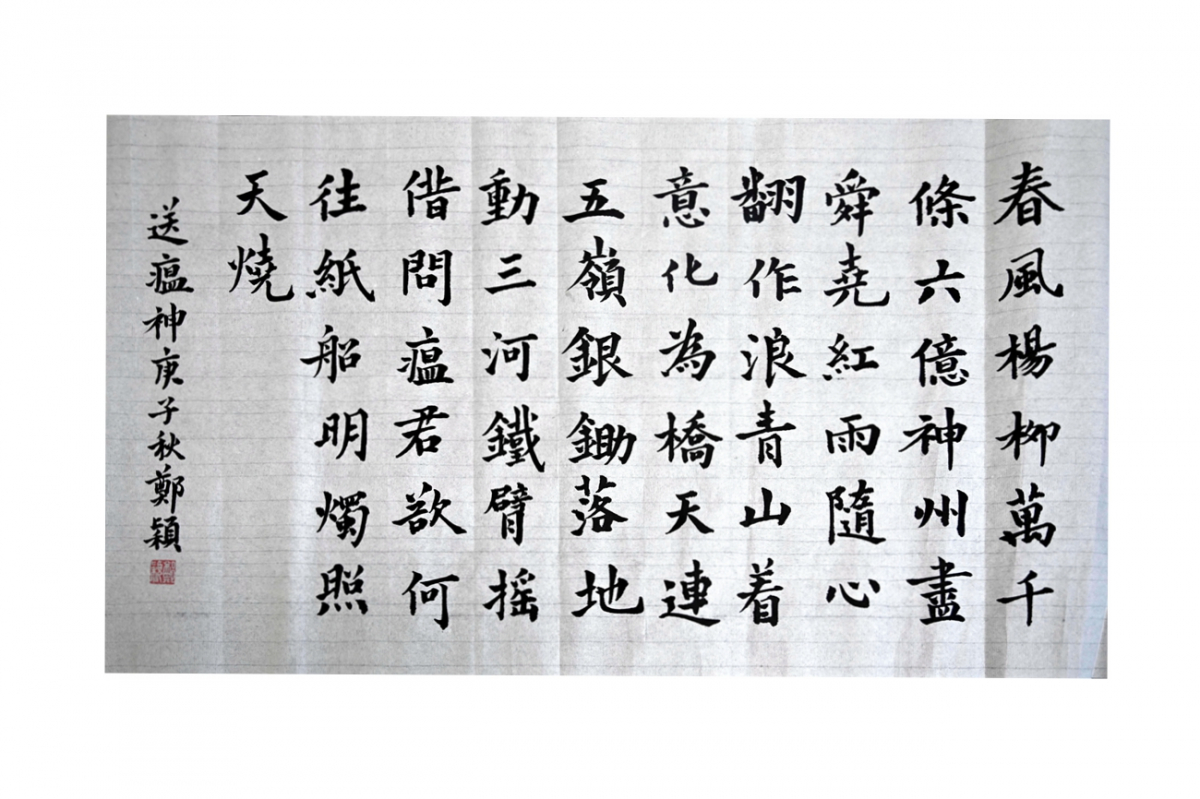 春風楊柳萬千
條六億神州盡
舜堯紅雨隨心
翻作浪青山着
意化為橋天連
五嶺銀鋤落地
動三河鐵臂摇
偕問瘟君欲何
往紙船明燭照
天燒
送瘟神庚子秋鄭穎